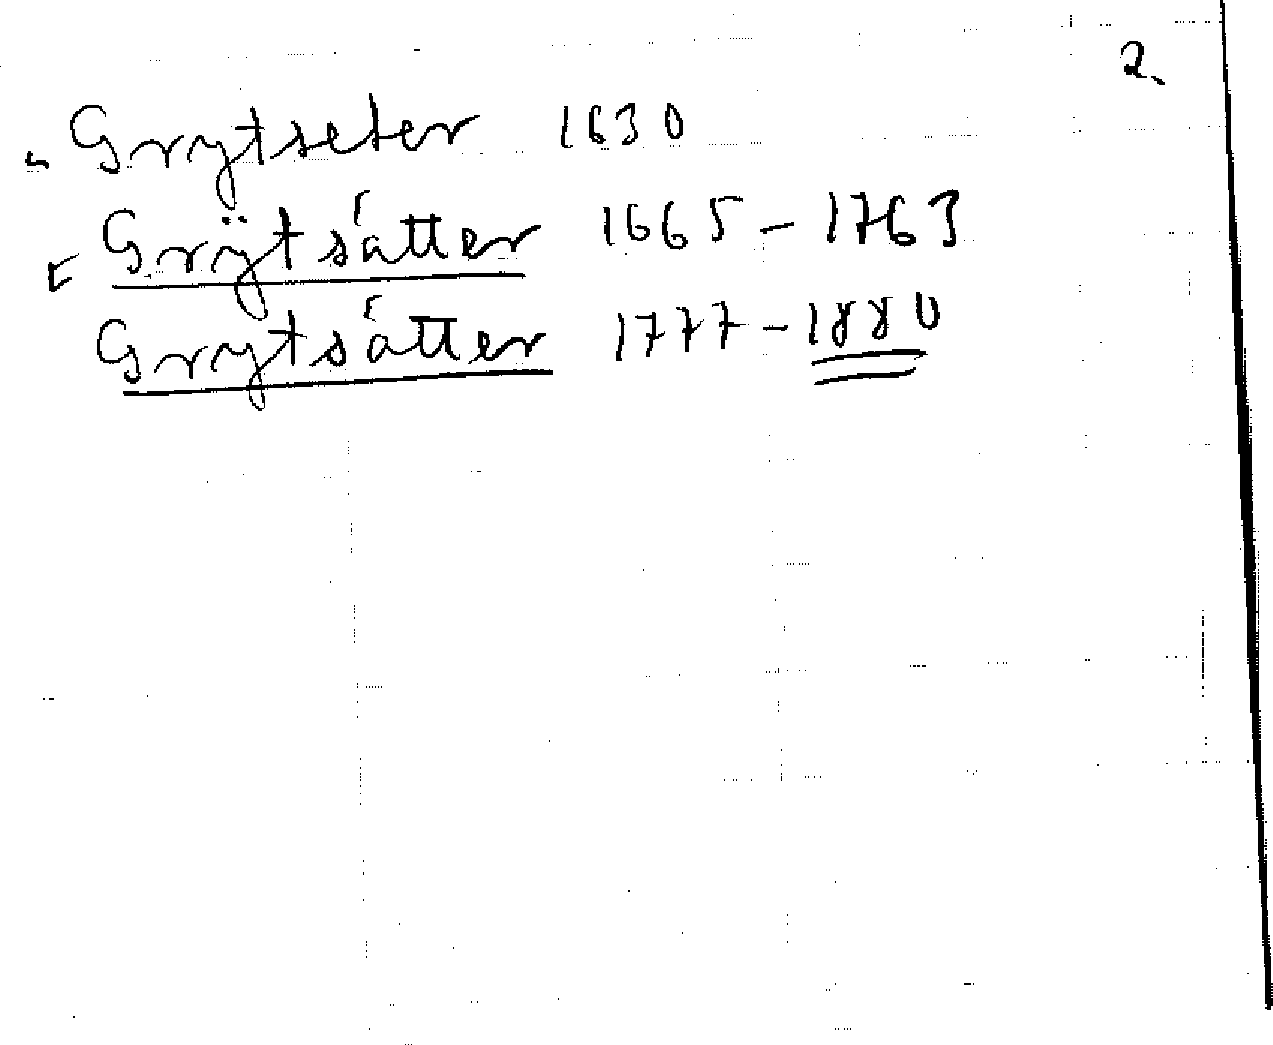 2.
Grytseter 1630
Grÿtsätter 1665 - 1763
Grytsätter 1777 - 1880